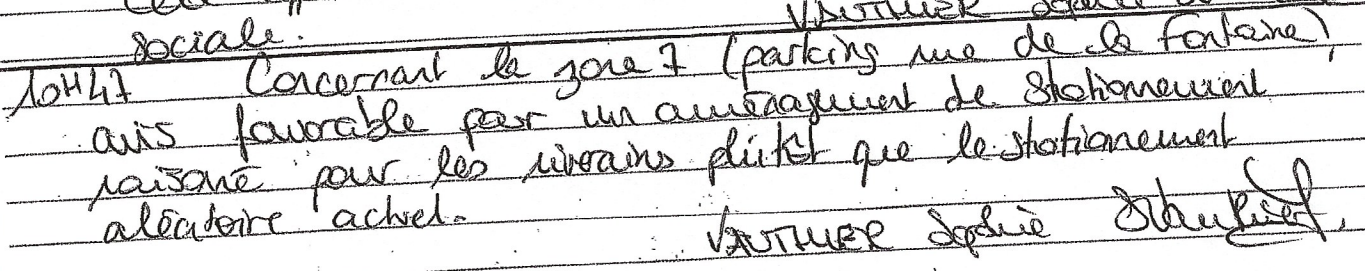 VAUTHIER Sophie
sociale."
10H47 Concernant la zone 7 (parking rue de la Fontaine),
avis favorable pour un aménagement de stationnement
raisoné pour les riverains plutôt que le stationnement
aléatoire actuel.
VAUTHIER Sophie